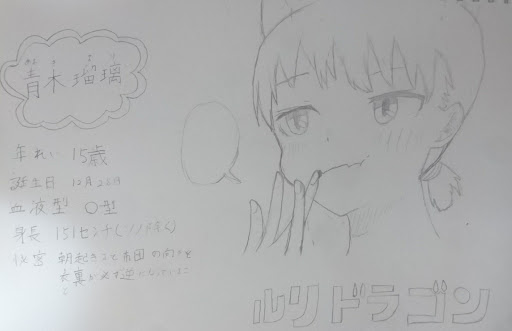 青木 瑠璃
あお き る り
年れい 15歳
誕生日 12月
血液型 O型
身長 151センチ
秘密 朝起きると布団の向きと
が必ず逆になっているこ
と
ルリドラゴン